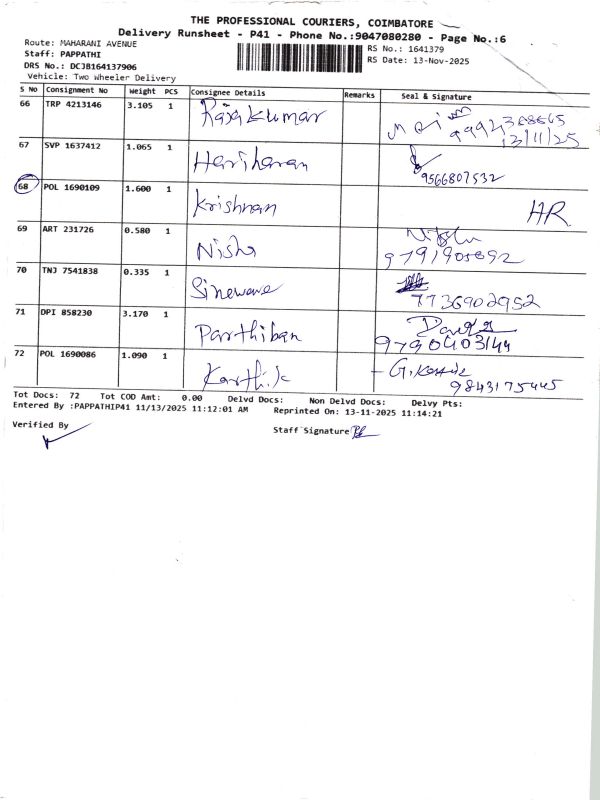 THE PROFESSIONAL COURIERS, COIMBATORE
Delivery Runsheet - P41 - Phone No.:9047080280 - Page No.:6
Route: MAHARANI AVENUE
Staff: PAPPATHI
DRS No.: DCJB164137906
Vehicle: Two Wheeler Delivery
RS No.: 1641379
RS Date: 13-Nov-2025
S No Consignment No Weight PCS Consignee Details Remarks Seal & Signature
66 TRP 4213146 3.105 1 Rajakumar
13/11/25
67 SVP 1637412 1.065 1 Hariharan 9566807532
68 POL 1690109 1.600 1 Krishnan HR
69 ART 231726 0.580 1 Nisha
70 TNJ 7541838 0.335 1 Sinewave 7736902952
71 DPI 858230 3.170 1 Parthiban 9790403144
72 POL 1690086 1.090 1 Karthik 9843175445
Tot Docs: 72 Tot COD Amt: 0.00 Delvd Docs: Non Delvd Docs: Delvy Pts:
Entered By :PAPPATHIP41 11/13/2025 11:12:01 AM Reprinted On: 13-11-2025 11:14:21
Verified By Staff Signature